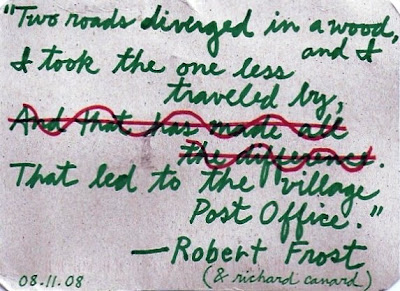 "Two roads diverged in a wood,
and I
I took the one less
traveled by,
And that has made all
the difference.
That led to the village
Post Office."
—Robert Frost
(& richard canard)
08.11.08